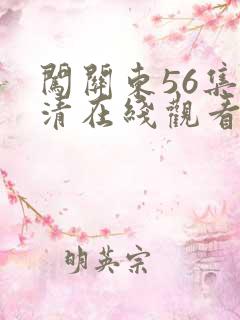 闖關東56集
清在綫觀看
明英宗